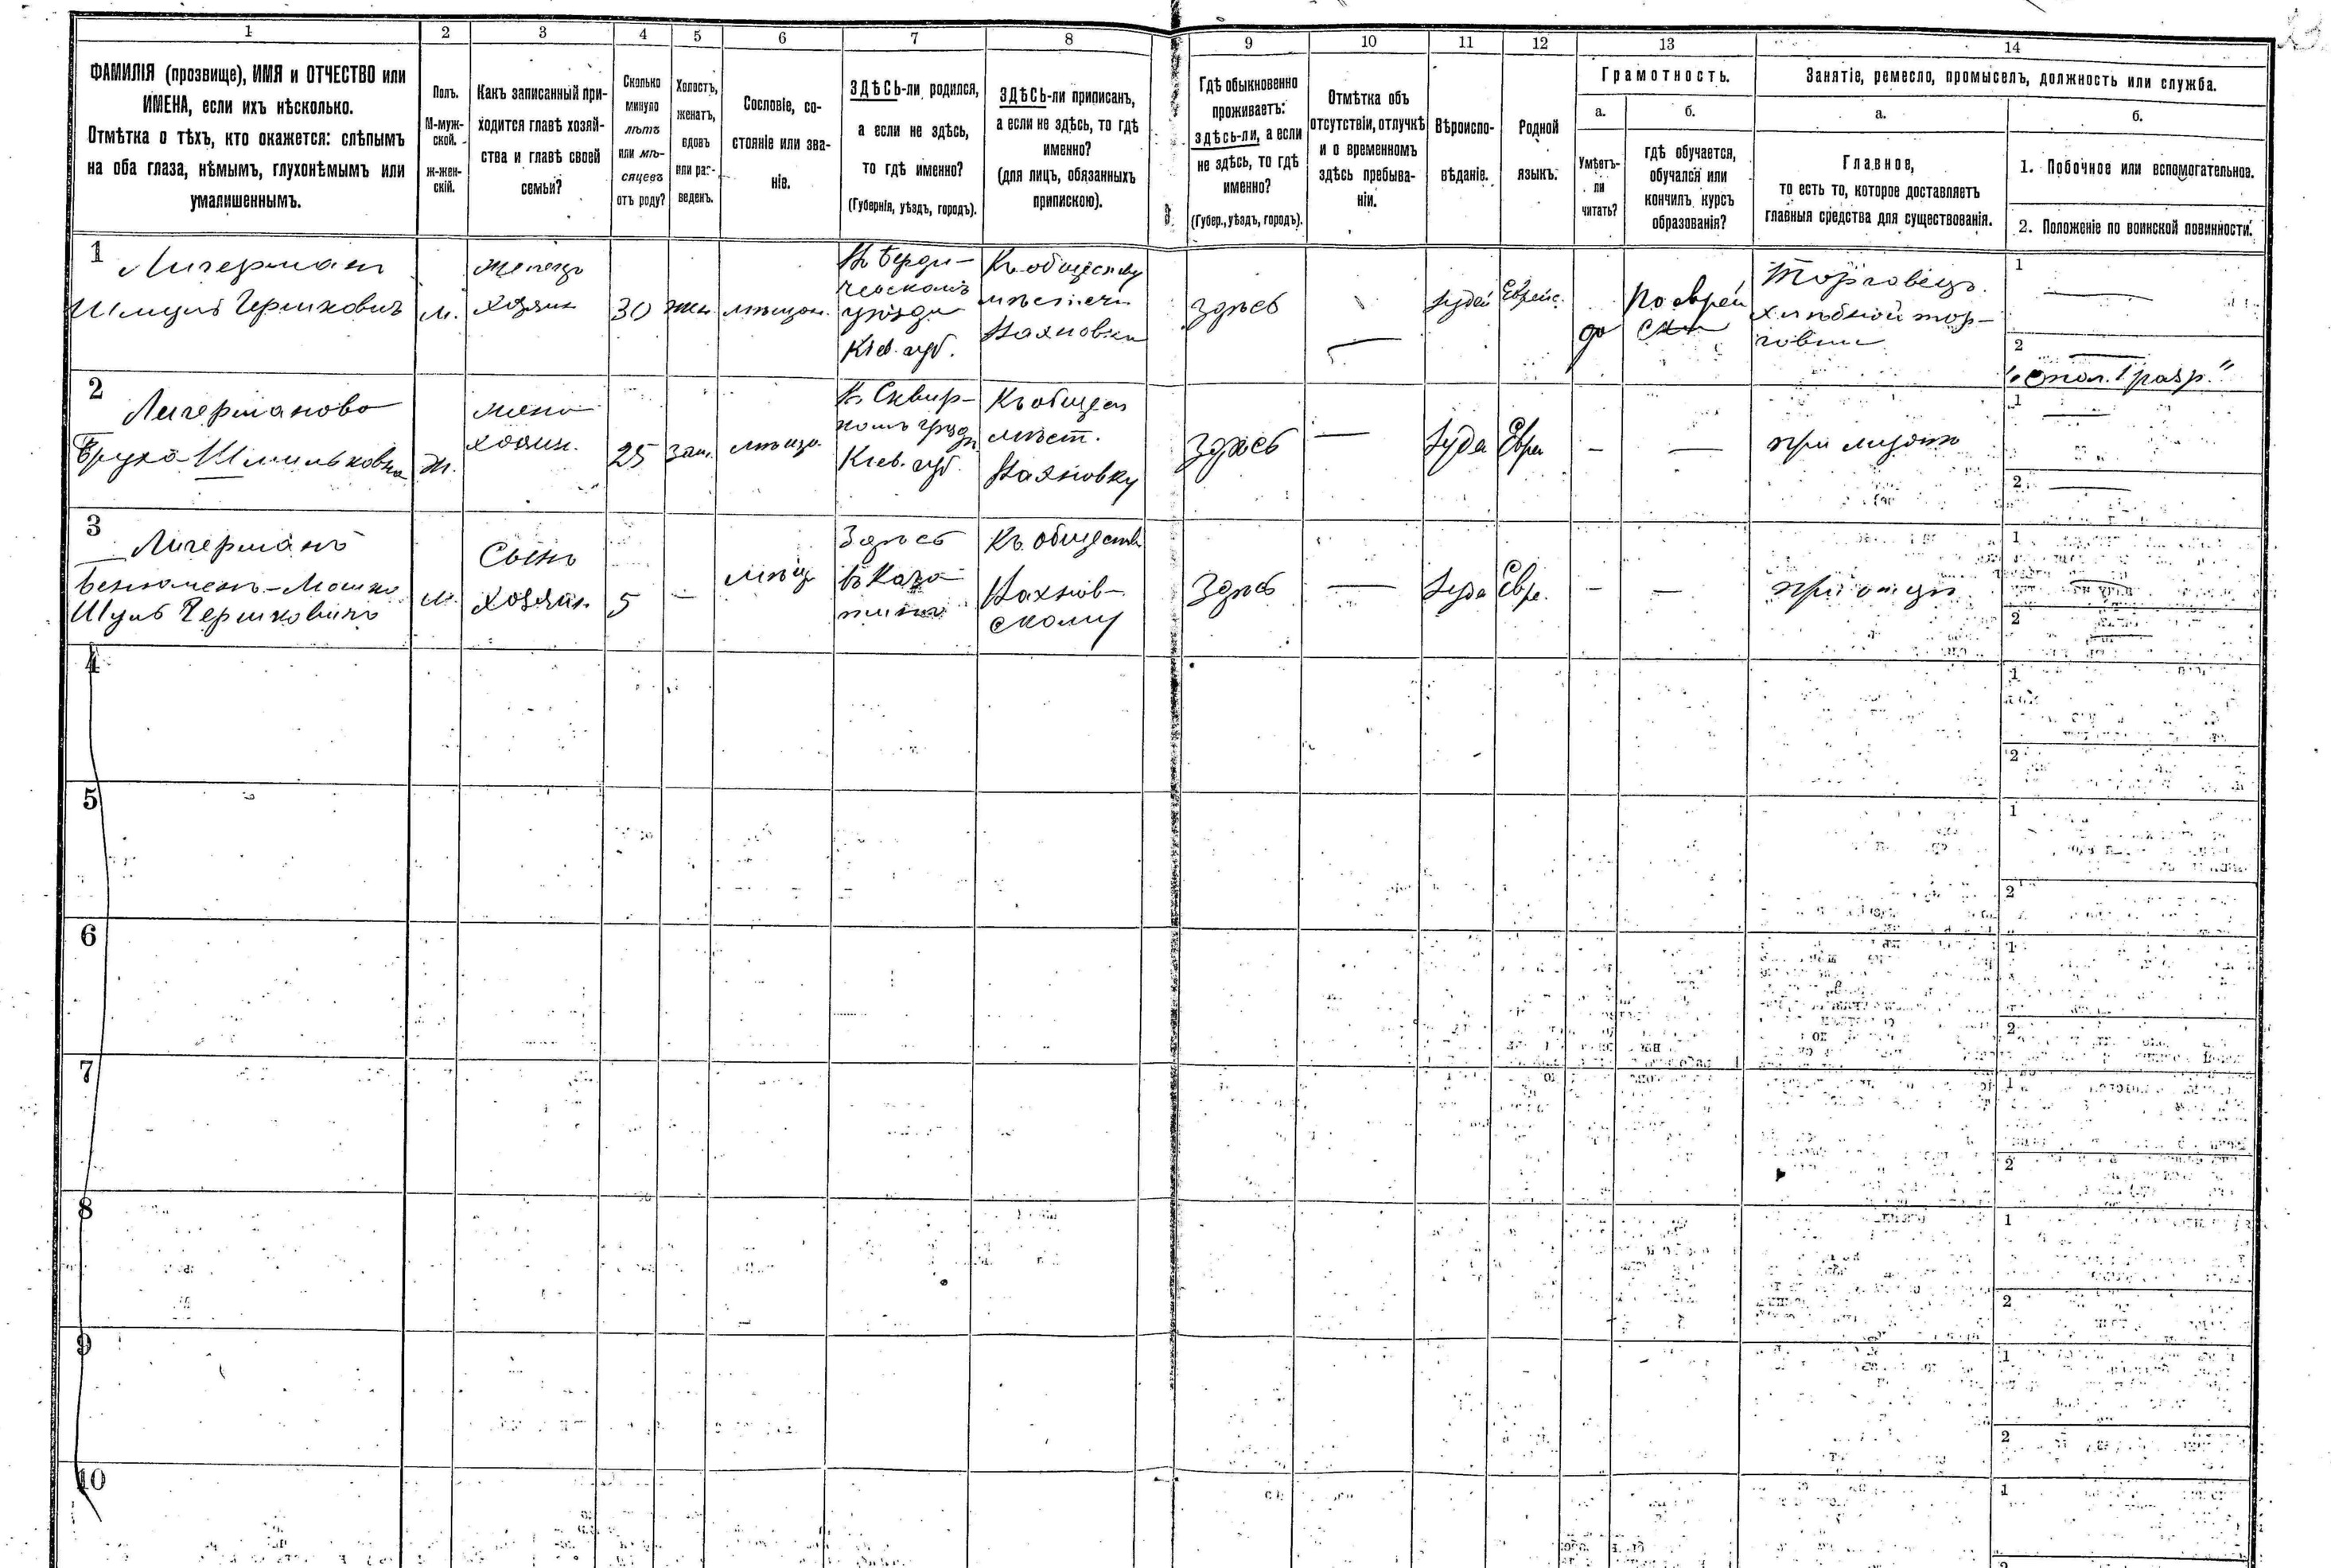 1 2 3 4 5 6 7 8 9 10 11 12 13 14
ФАМИЛІЯ (прозвище), ИМЯ и ОТЧЕСТВО или
ИМЕНА, если ихъ нѣсколько.
Отмѣтка о тѣхъ, кто окажется: слѣпымъ
на оба глаза, нѣмымъ, глухонѣмымъ или
умалишеннымъ.
Полъ.
М-муж-
ской.
Ж-жен-
скій.
Какъ записанный при-
ходится главѣ хозяй-
ства и главѣ своей
семьи?
Сколько
минуло
лѣтъ
или мѣ-
сяцевъ
отъ роду?
Холостъ,
женатъ,
вдовъ
или раз-
веденъ.
Сословіе, со-
стояніе или зва-
ніе.
ЗДѢСЬ-ли родился,
а если не здѣсь,
то гдѣ именно?
(Губернія, уѣздъ, городъ).
ЗДѢСЬ-ли приписанъ,
а если не здѣсь, то гдѣ
именно?
(для лицъ, обязанныхъ
припискою).
Гдѣ обыкновенно
проживаетъ:
здѣсь-ли, а если
не здѣсь, то гдѣ
именно?
(Губер., уѣздъ, городъ).
Отмѣтка объ
отсутствіи, отлучкѣ
и о временномъ
здѣсь пребыва-
ніи.
Вѣроиспо-
вѣданіе.
Родной
языкъ.
Грамотность.
а.
Умѣетъ-
ли
читать?
б.
гдѣ обучается,
обучался или
кончилъ курсъ
образованія?
Занятіе, ремесло, промыселъ, должность или служба.
а.
Главное,
то есть то, которое доставляетъ
главныя средства для существованія.
б.
1. Побочное или вспомогательное.
2. Положеніе по воинской повинности.
1
Лигерман
Шмуль Гершкович
м.
хозяин
30
жен.
мѣщан.
Въ Берди-
ческомъ
уѣзде
Кіев. губ.
Къ обществу
местечк
Вахновки
здѣсь
Іудей
Еврейс.
да
По еврей
ски
Торговецъ.
хлѣбной тор-
говли
1
2
"Опол. 1 разр."
2
Лигерманова
Бруха Шмильковна
ж.
жена
хозяин.
25
зам.
мѣща.
В Сквир-
ком уезд
Кіев. губ.
Къ общес
мѣст.
Вахновку
Здѣсь
Іуде
Евре
при мужѣ
1
2
3
Лигерманъ
Мошко
Шуль Гершковичъ
м.
Сынъ
хозяин.
5
мѣщ
Здѣсь
въ Каза
тинѣ
Къ обществ
Вахнов-
скому
Здѣсь
Іуде
Евре.
при отцѣ
1
2
4
1
2
5
1
2
6
1
2
7
1
2
8
1
2
9
1
2
10
1
2